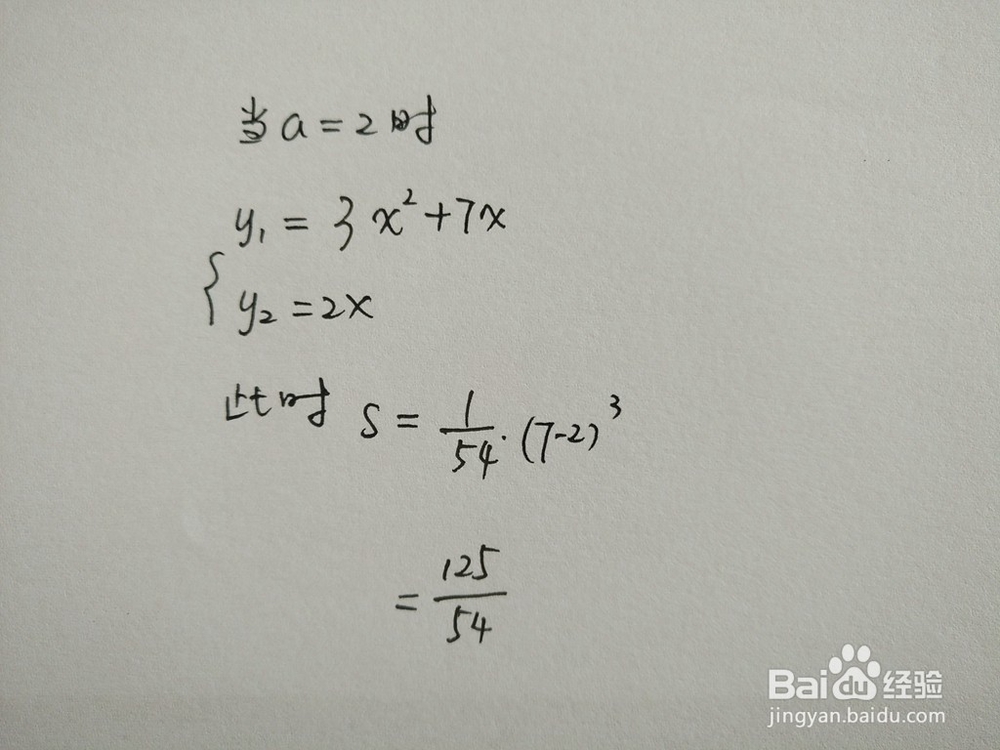 当a=2时
y₁=3x²+7x
{y₂=2x
此时 S=1/54·(7-2)³
=125/54
Baidu经验
jingyan.baidu.com